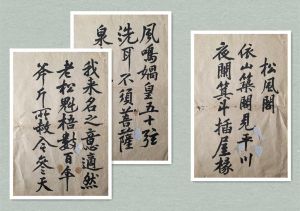 松風閣
依山築閣見平川
夜闌箕斗插屋椽
我来名之意適然
老松魁梧數百年
斧斤所赦今參天
風鳴媧皇五十弦
洗耳不須菩薩
泉